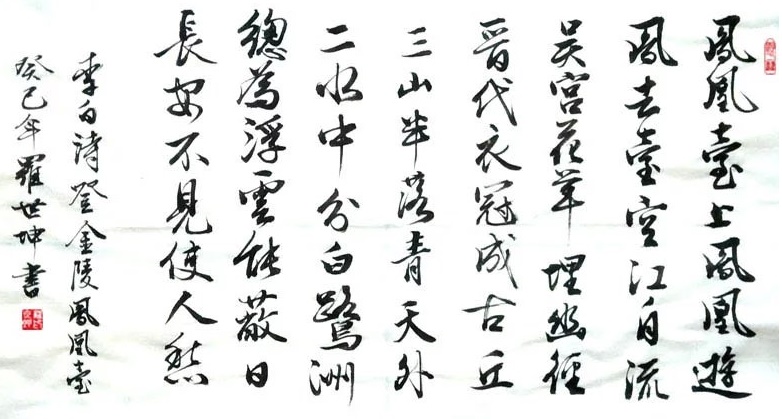 鳳凰臺上鳳凰遊
鳳去臺空江自流
吴宮花草埋幽徑
晉代衣冠成古丘
三山半落青天外
二水中分白鷺洲
總為浮雲能蔽日
長安不見使人愁
李白詩登金陵鳳凰臺
癸巳年羅世坤書